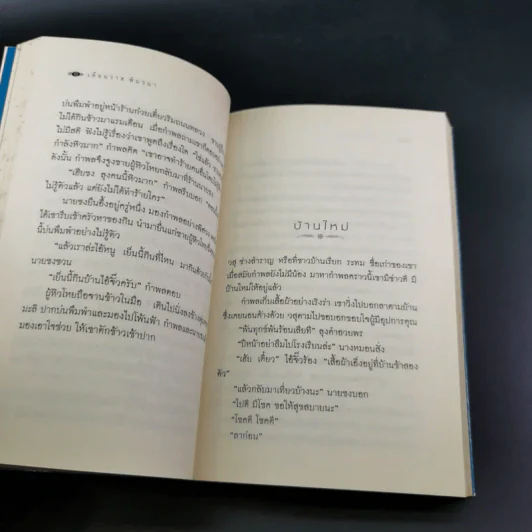 เดือนวาด พิมวนา
บ่นพึมพำอยู่หน้าร้านก๋วยเตี๋ยวริมถนนหลวง
ไม่ได้กินข้าวมาแรมเดือน เมื่อกำพลถามเขาก็
ไม่มีสติ ฟังไม่รู้เรื่องว่าเขาพูดถึงเรื่องใด
กำลังหิวมาก" กำพลคิด "เขาอาจทำร้ายคนอื่น
ดังนั้น กำพลจึงจูงชายผู้หิวโหยกลับมาที่ร้าน
"เฮียชง ลุงคนนี้หิวมาก" กำพลรีบบอก
ไม่รู้ตัวแล้ว แต่ยังไม่ได้ทำร้ายใคร"
นายชงยืนอึ้งอยู่ครู่หนึ่ง มองกำพลอย่าง
ได้เขารีบเข้าครัวหาของกิน นำมายื่นแก่ชายผู้หิว
นี้บ่นพึมพำอย่างไม่รู้ตัว
"แล้วเราล่ะไอ้หนู เย็นนี้กินที่ไหน มากิน
นายชงชวน
"เย็นนี้กินบ้านไอ้จิ๊วครับ" กำพลตอบ
ผู้หิวโหยถือชามข้าวในมือ เดินไปนั่งลงข้าง
มะลิ ปากบ่นพึมพำและมองไปโพ้นฟ้า กำพลและ
มองเอาใจช่วย ให้เขาตักข้าวเข้าปาก
บ้านใหม่
วสุ ช่างสำราญ หรือที่ชาวบ้านเรียก ระหม ชื่อเก่าของเขา
เมื่อสมัยกำพลยังไม่มีน้อง มาหากำพลคราวนี้เขามีข่าวดี มี
บ้านใหม่ให้อยู่แล้ว
กำพลเก็บเสื้อผ้าอย่างเริงร่า เขาวิ่งไปบอกลาตามบ้าน
ซึ่งเคยนอนค้างด้วย วสุตามไปขอบอกขอบใจผู้มีอุปการคุณ
"พ้นทุกข์พ้นร้อนเสียที" ลุงคำอวยพร
"ปีหน้าอย่าลืมไปโรงเรียนล่ะ" นางหมอนสั่ง
"เฮ้ย เดี๋ยว" ไอ้จิ๊วร้อง "เสื้อผ้าเอ็งอยู่ที่บ้านข้าสอง
ตัว"
"แล้วกลับมาเที่ยวบ้างนะ" นายชงบอก
"ไปดี มีโชค ขอให้สุขสบายนะ"
"โชคดี โชคดี"
"ลาก่อน"